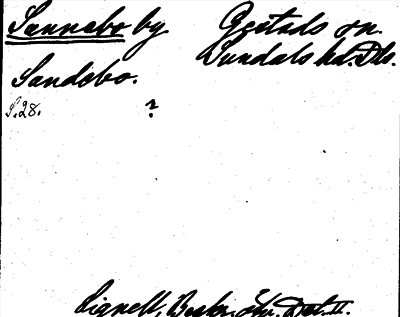 Sannebo by
Gestads sn.
Sundals hd. Dls.
Sandebo.
S. 28.
?
Lignell, Beskr. öfv. Dal. II.